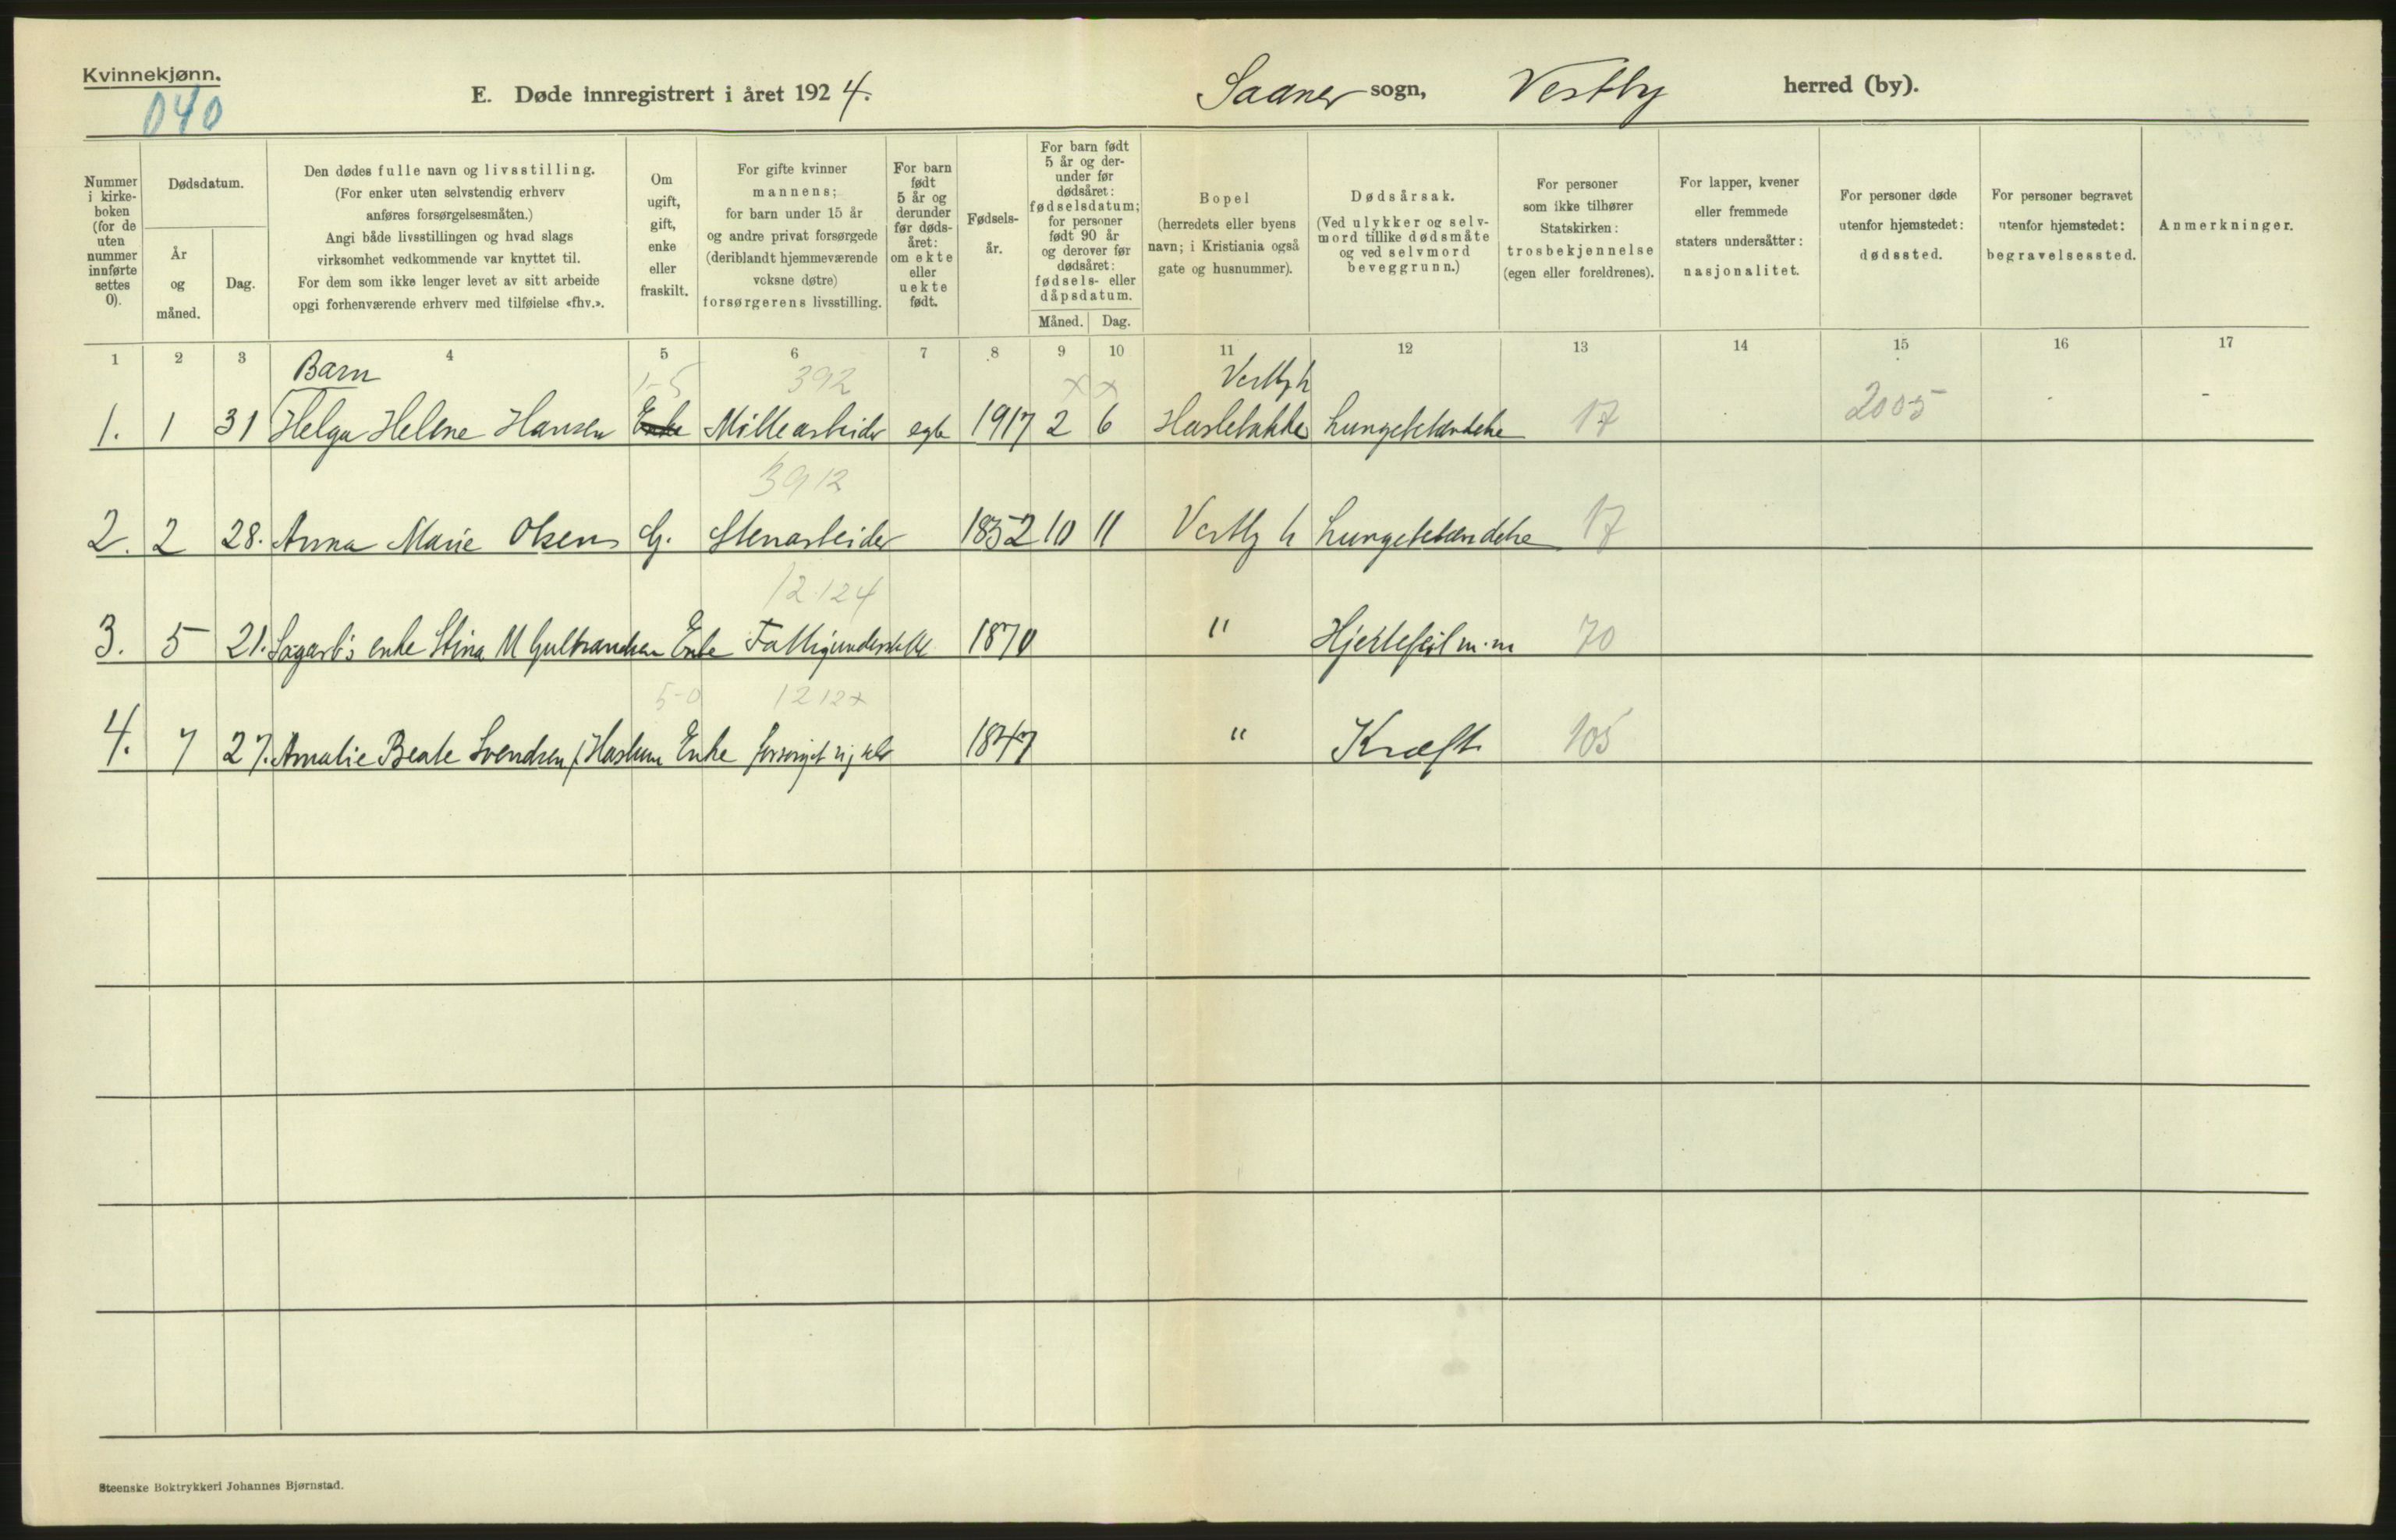 Kvinnekjønn.
040
E. Døde innregistrert i året 1924.
Saaner sogn, Vestby herred (by).
Nummer i kirkeboken (for de uten nummer innførte settes 0).
Dødsdatum.
År og måned.
Dag.
Den dødes fulle navn og livsstilling.
(For enker uten selvstendig erhverv
anføres forsørgelsesmåten.)
Angi både livsstillingen og hvad slags
virksomhet vedkommende var knyttet til.
For dem som ikke lenger levet av sitt arbeide
opgi forhenværende erhverv med tilføielse «fhv.».
Om ugift, gift, enke eller fraskilt.
For gifte kvinner
mannens;
for barn under 15 år
og andre privat forsørgede
(deriblandt hjemmeværende
voksne døtre)
forsørgerens livsstilling.
For barn født 5 år og derunder før dødsåret: om ekte eller uekte født.
Fødselsår.
For barn født 5 år og derunder før dødsåret: fødselsdatum; for personer født 90 år og derover før dødsåret: fødsels- eller dåpsdatum.
Måned. Dag.
Bopel
(herredets eller byens
navn; i Kristiania også
gate og husnummer).
Dødsårsak.
(Ved ulykker og selvmord tillike dødsmåte og ved selvmord beveggrunn.)
For personer
som ikke tilhører
Statskirken:
trosbekjennelse
(egen eller foreldrenes).
For lapper, kvener
eller fremmede
staters undersåtter:
nasjonalitet.
For personer døde
utenfor hjemstedet:
dødssted.
For personer begravet
utenfor hjemstedet:
begravelsessted.
Anmerkninger.
1 2 3 4 5 6 7 8 9 10 11 12 13 14 15 16 17
Barn 1-5 392 x x Vestby h
1. 1 31 Helga Helene Hansen Enke Millearbeider egte 1917 2 6 17 2005
3912
2. 2 28. Anna Marie Olsen G. Stenarbeider 1852 10 11 Vestby h Lungebetændelse 17
12.124
3. 5 21. enke Stina M Gulbrandsen Enke 1870 " Hjertefeil m.m 70
5-0 1212x
4. 7 27. Amalie Beate Svendsen Enke forsørget sig selv 1847 " Kræft 105
Steenske Boktrykkeri Johannes Bjørnstad.